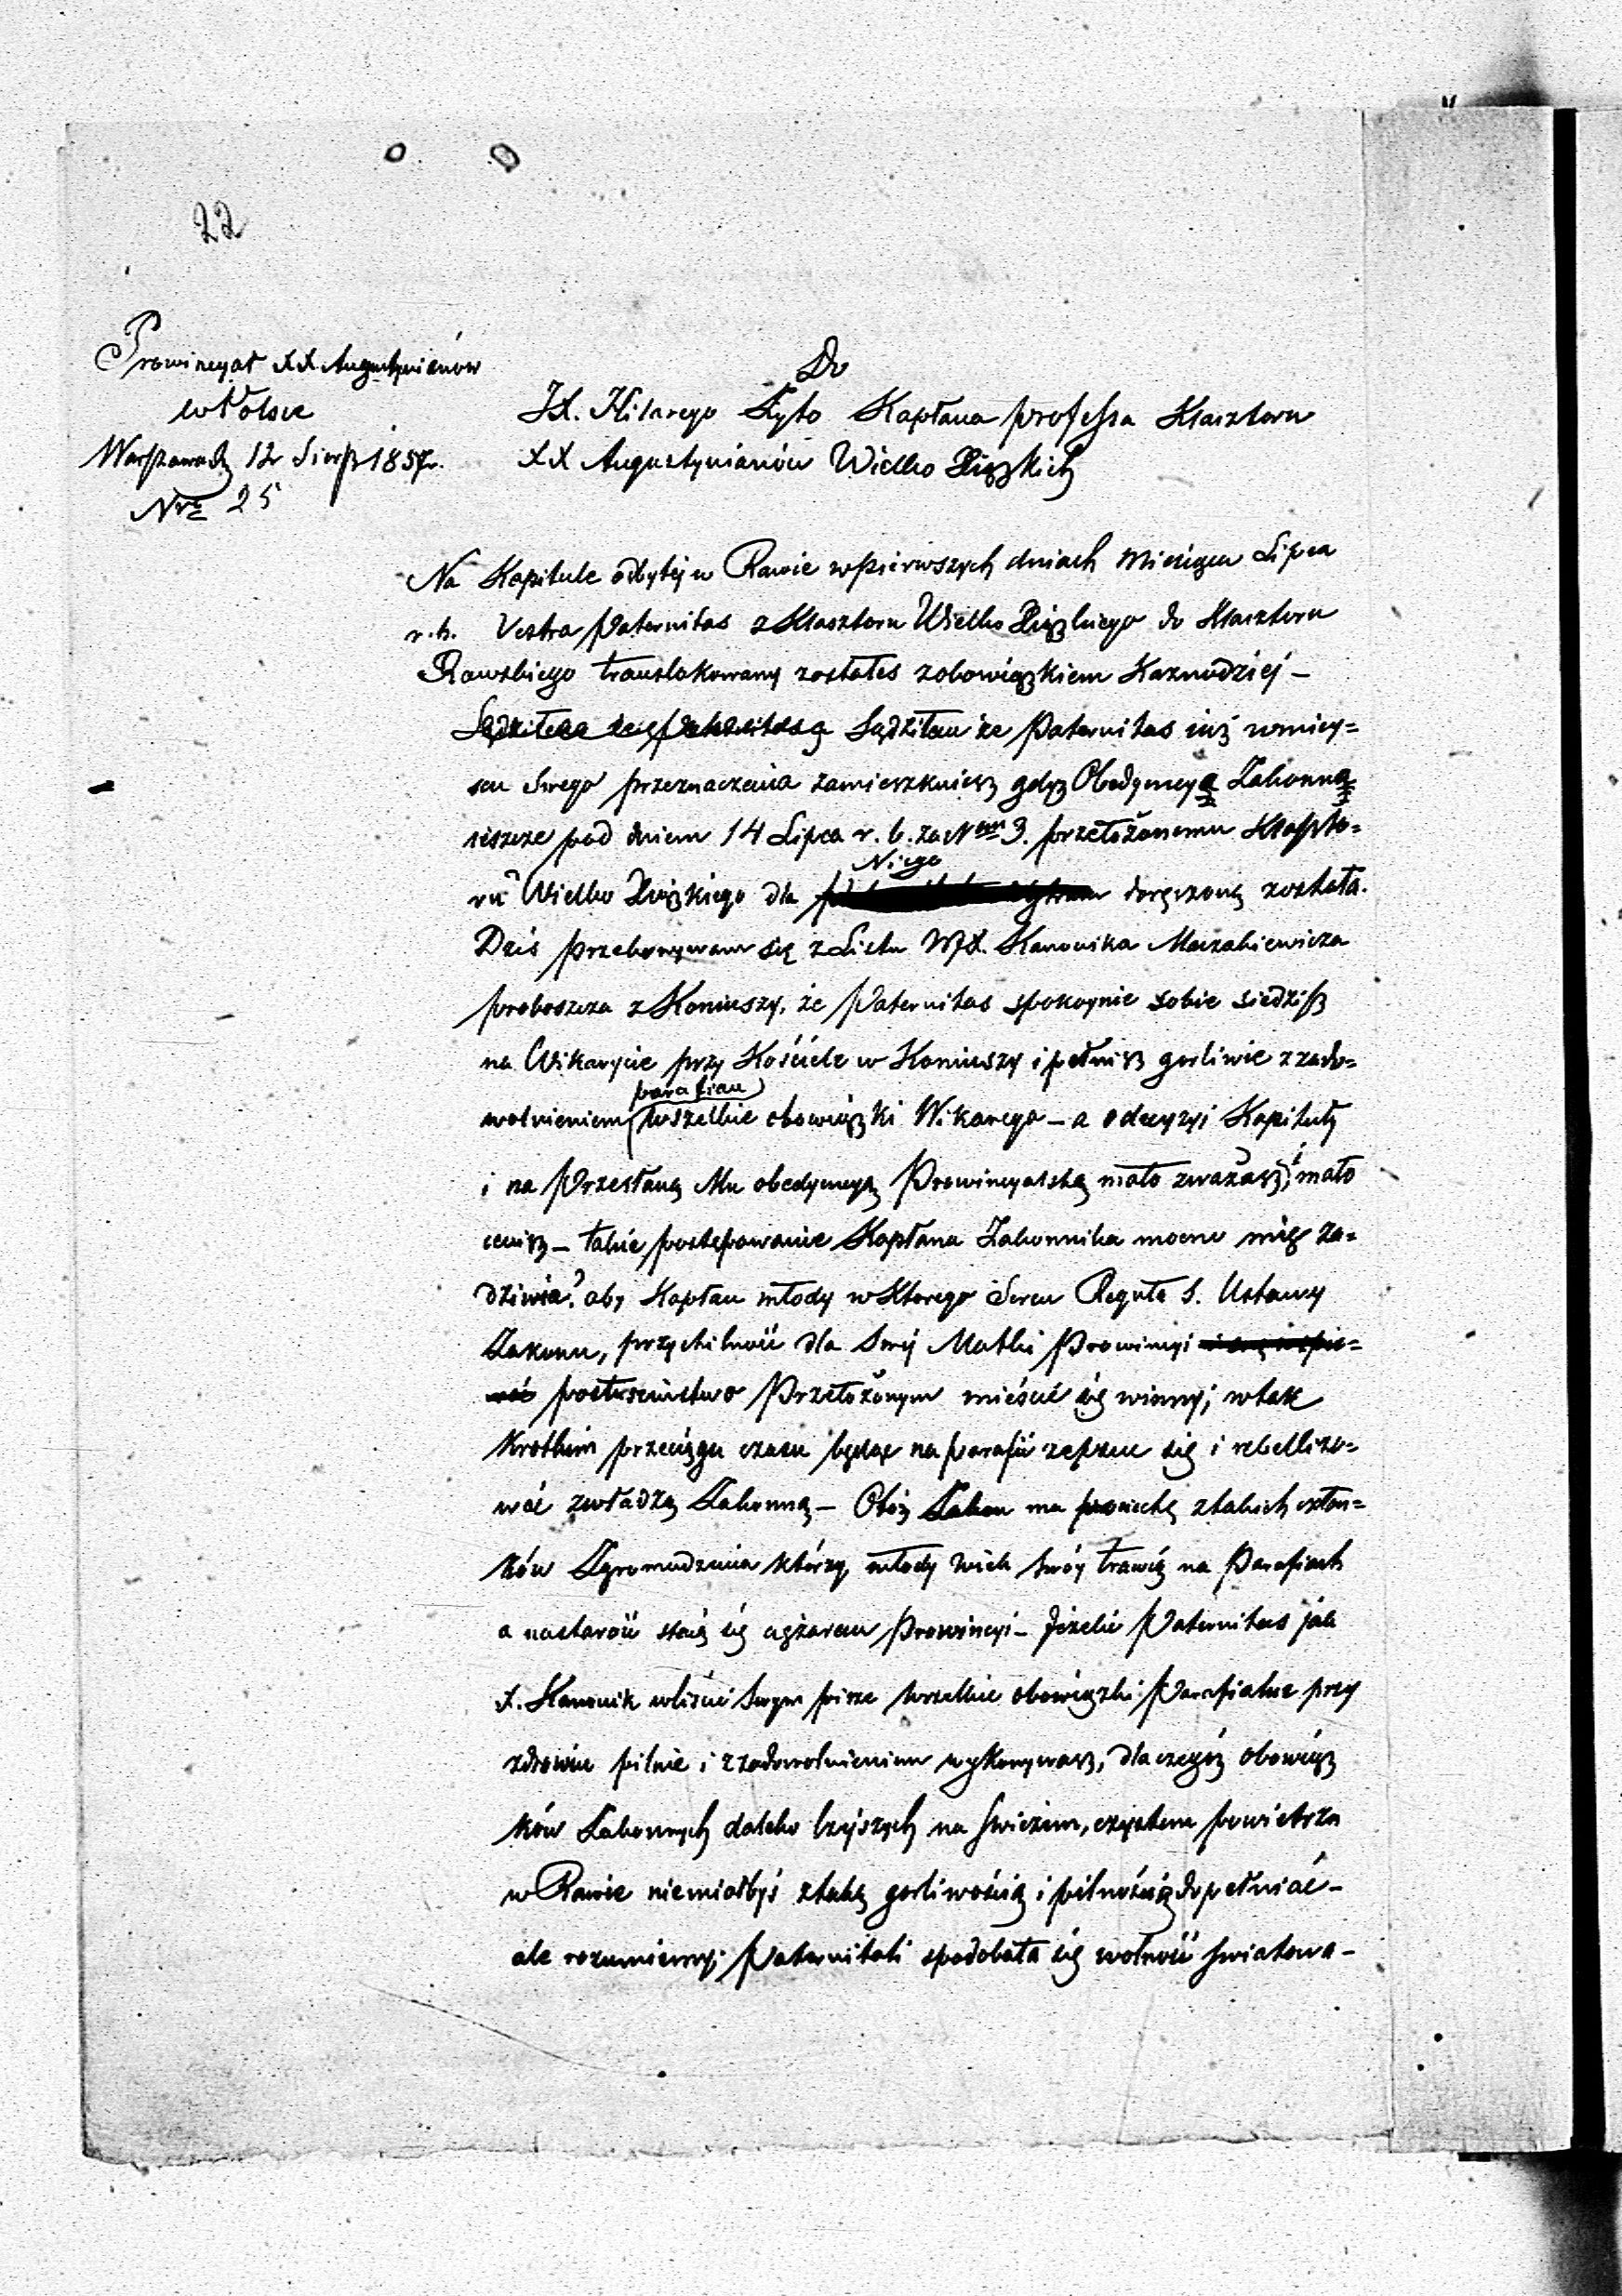 22
Prowincyał XX. Augustyanów
w Polsce
Warszawa d. 12 Sierp. 1857r.
Nro 25
Do
JX. Hilarego Łyto Kapłana professa Klasztoru
XX Augustynianów Wielko Xiązkich
Na Kapitule odbytej w Rawie w pierwszych dniach Miesiąca Lipca
r. b. Vestra Paternitas z Klasztoru Wielko Xiązkiego do Klasztoru
Rawskiego translokowany zostałeś z obowiązkiem Kaznodziei –
Sądziłem że Paternitas iuż w miey=
scu Swego przeznaczenia zamieszkuiesz gdyż Obedyencya Zakonna
ieszcze pod dniem 14 Lipca r. b. za Nrm 3. przełożonemu Klaszto=
ru Wielko Xiązkiego dla Niego doręczoną została.
Dziś przekonywam się z Listu WJX. Kanonika Maczakiewicza
proboszcza z Koniuszy, że Paternitas spokoynie sobie siedzisz
na Wikarycie przy Kościele w Koniuszy i pełnisz gorliwie z zado=
wolnieniem parafian wszelkie obowiązki Wikarego – a o decyzyi Kapituły
i na Przesłaną Mu obedyencyą Prowincyalską mało zważasz, i mało
cenisz – takie postępowanie Kapłana Zakonnika mocno mię za=
dziwia? aby Kapłan młody w Ktorego Sercu Reguła S. Ustawy
Zakonu, przychilność dla Swej Matki Prowincyi
posłuszeństwo Przełożonym mieścić się winny; w tak
Krotkim przeciągu czasu będąc na parafii zepsuć się i rebellizo=
wać z władzą Zakonną – Otóż Zakon ma pociechę z takich człon=
ków Zgromadzenia którzy młody wiek Swóy trawią na Parafiach
a na starość staią się ciężarem Prowincyi – Jeżeli Paternitas jak
X. Kanonik w liście Swym pisze wszelkie obowiązki Parafialne przy
zdrowiu pilnie i z zadowolnieniem wykonywasz, dla czegoż obowiąz
ków Zakonnych daleko lżejszych na świeżem, czystem powietrzu
w Rawie niemiałbyś z taką gorliwością i pilnością dopełniać –
ale rozumiemy; Paternitati spodobała się wolność światowa –